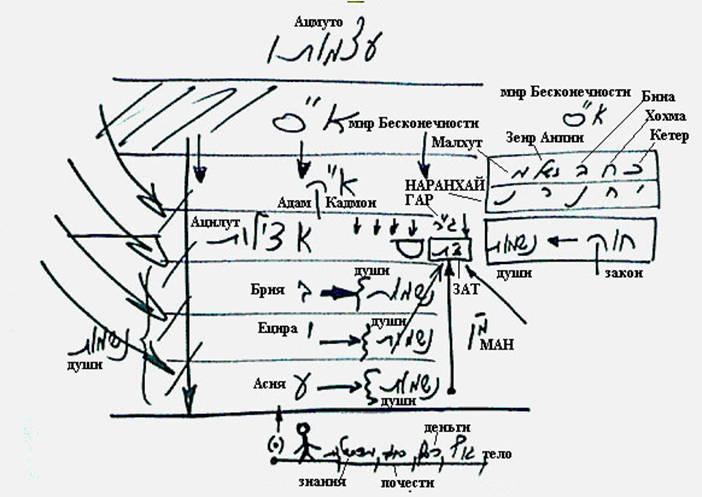 Ацмуто
עצמותו
мир Бесконечности
א"ס мир Бесконечности
א"ס
Бина
Хохма
Кетер
Зеир Анпин
Малхут
כ ח ב ז"א מ
НАРАНХАЙ
י ח נ ר נ
ГАР
ג"ר
א"ק
Адам Кадмон
Ацилут
אצילות
חוק נשמות
души закон
ЗАТ
Брия ב נשמות
души
Ецира י נשמות
души
מ"ן
МАН
נשמות
души
Асия ע נשמות
души
деньги
(•) כסף גוף тело
знания почести